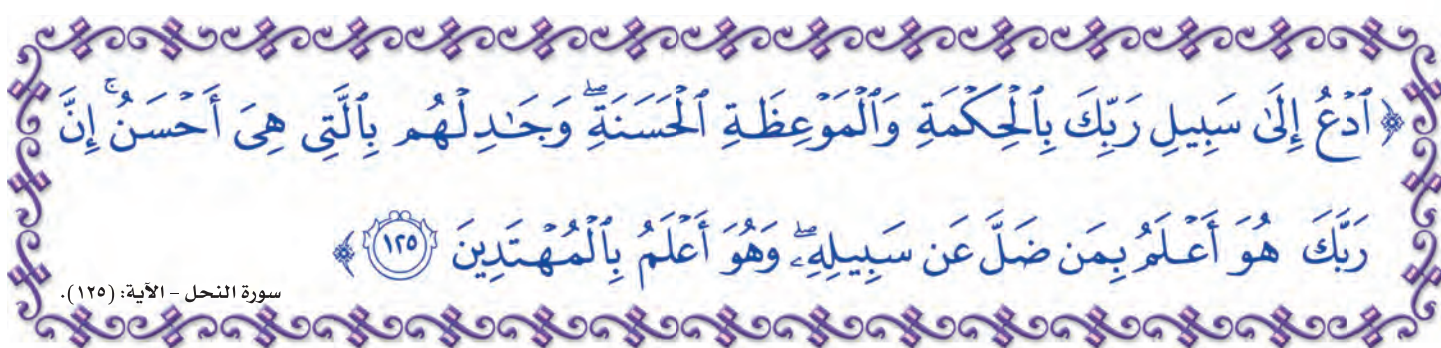 ﴿ ٱدۡعُ إِلَىٰ سَبِيلِ رَبِّكَ بِٱلۡحِكۡمَةِ وَٱلۡمَوۡعِظَةِ ٱلۡحَسَنَةِۖ وَجَٰدِلۡهُم بِٱلَّتِي هِيَ أَحۡسَنُۚ إِنَّ
رَبَّكَ هُوَ أَعۡلَمُ بِمَن ضَلَّ عَن سَبِيلِهِۦۖ وَهُوَ أَعۡلَمُ بِٱلۡمُهۡتَدِينَ ١٢٥ ﴾
سورة النحل - الآية: (١٢٥).